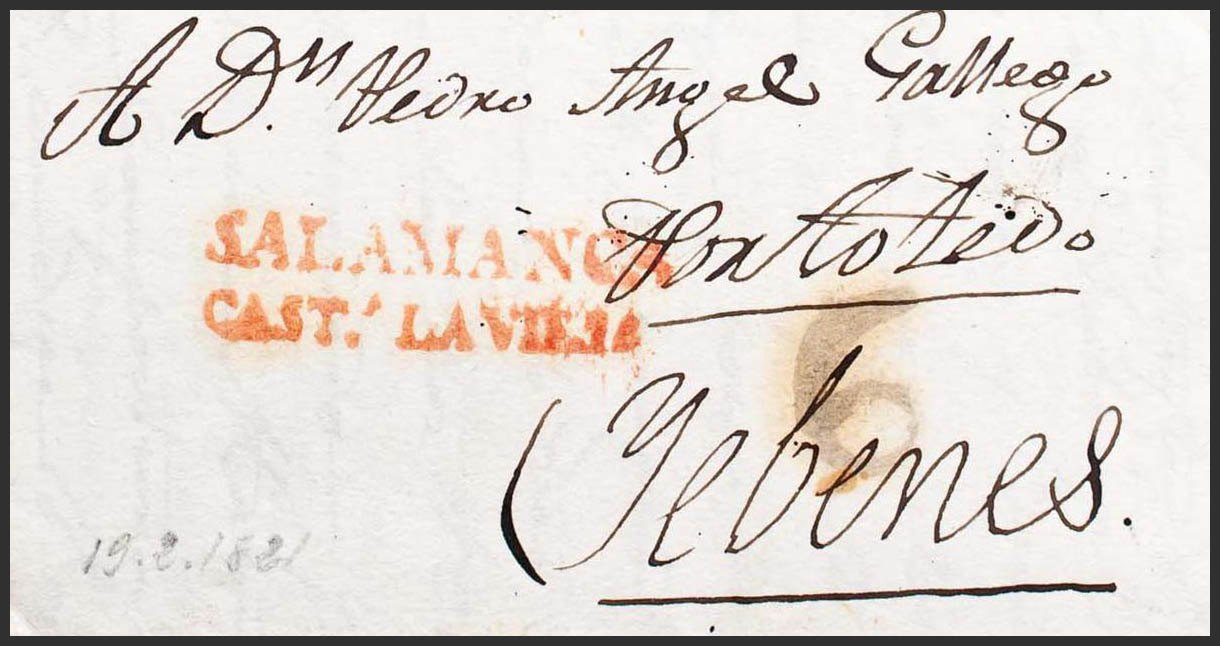 A Dn. Pedro Angel Gallego
SALAMANCA
CAST.A LA VIEJA
Por Toledo
6
(Yebenes.
19.2.1821